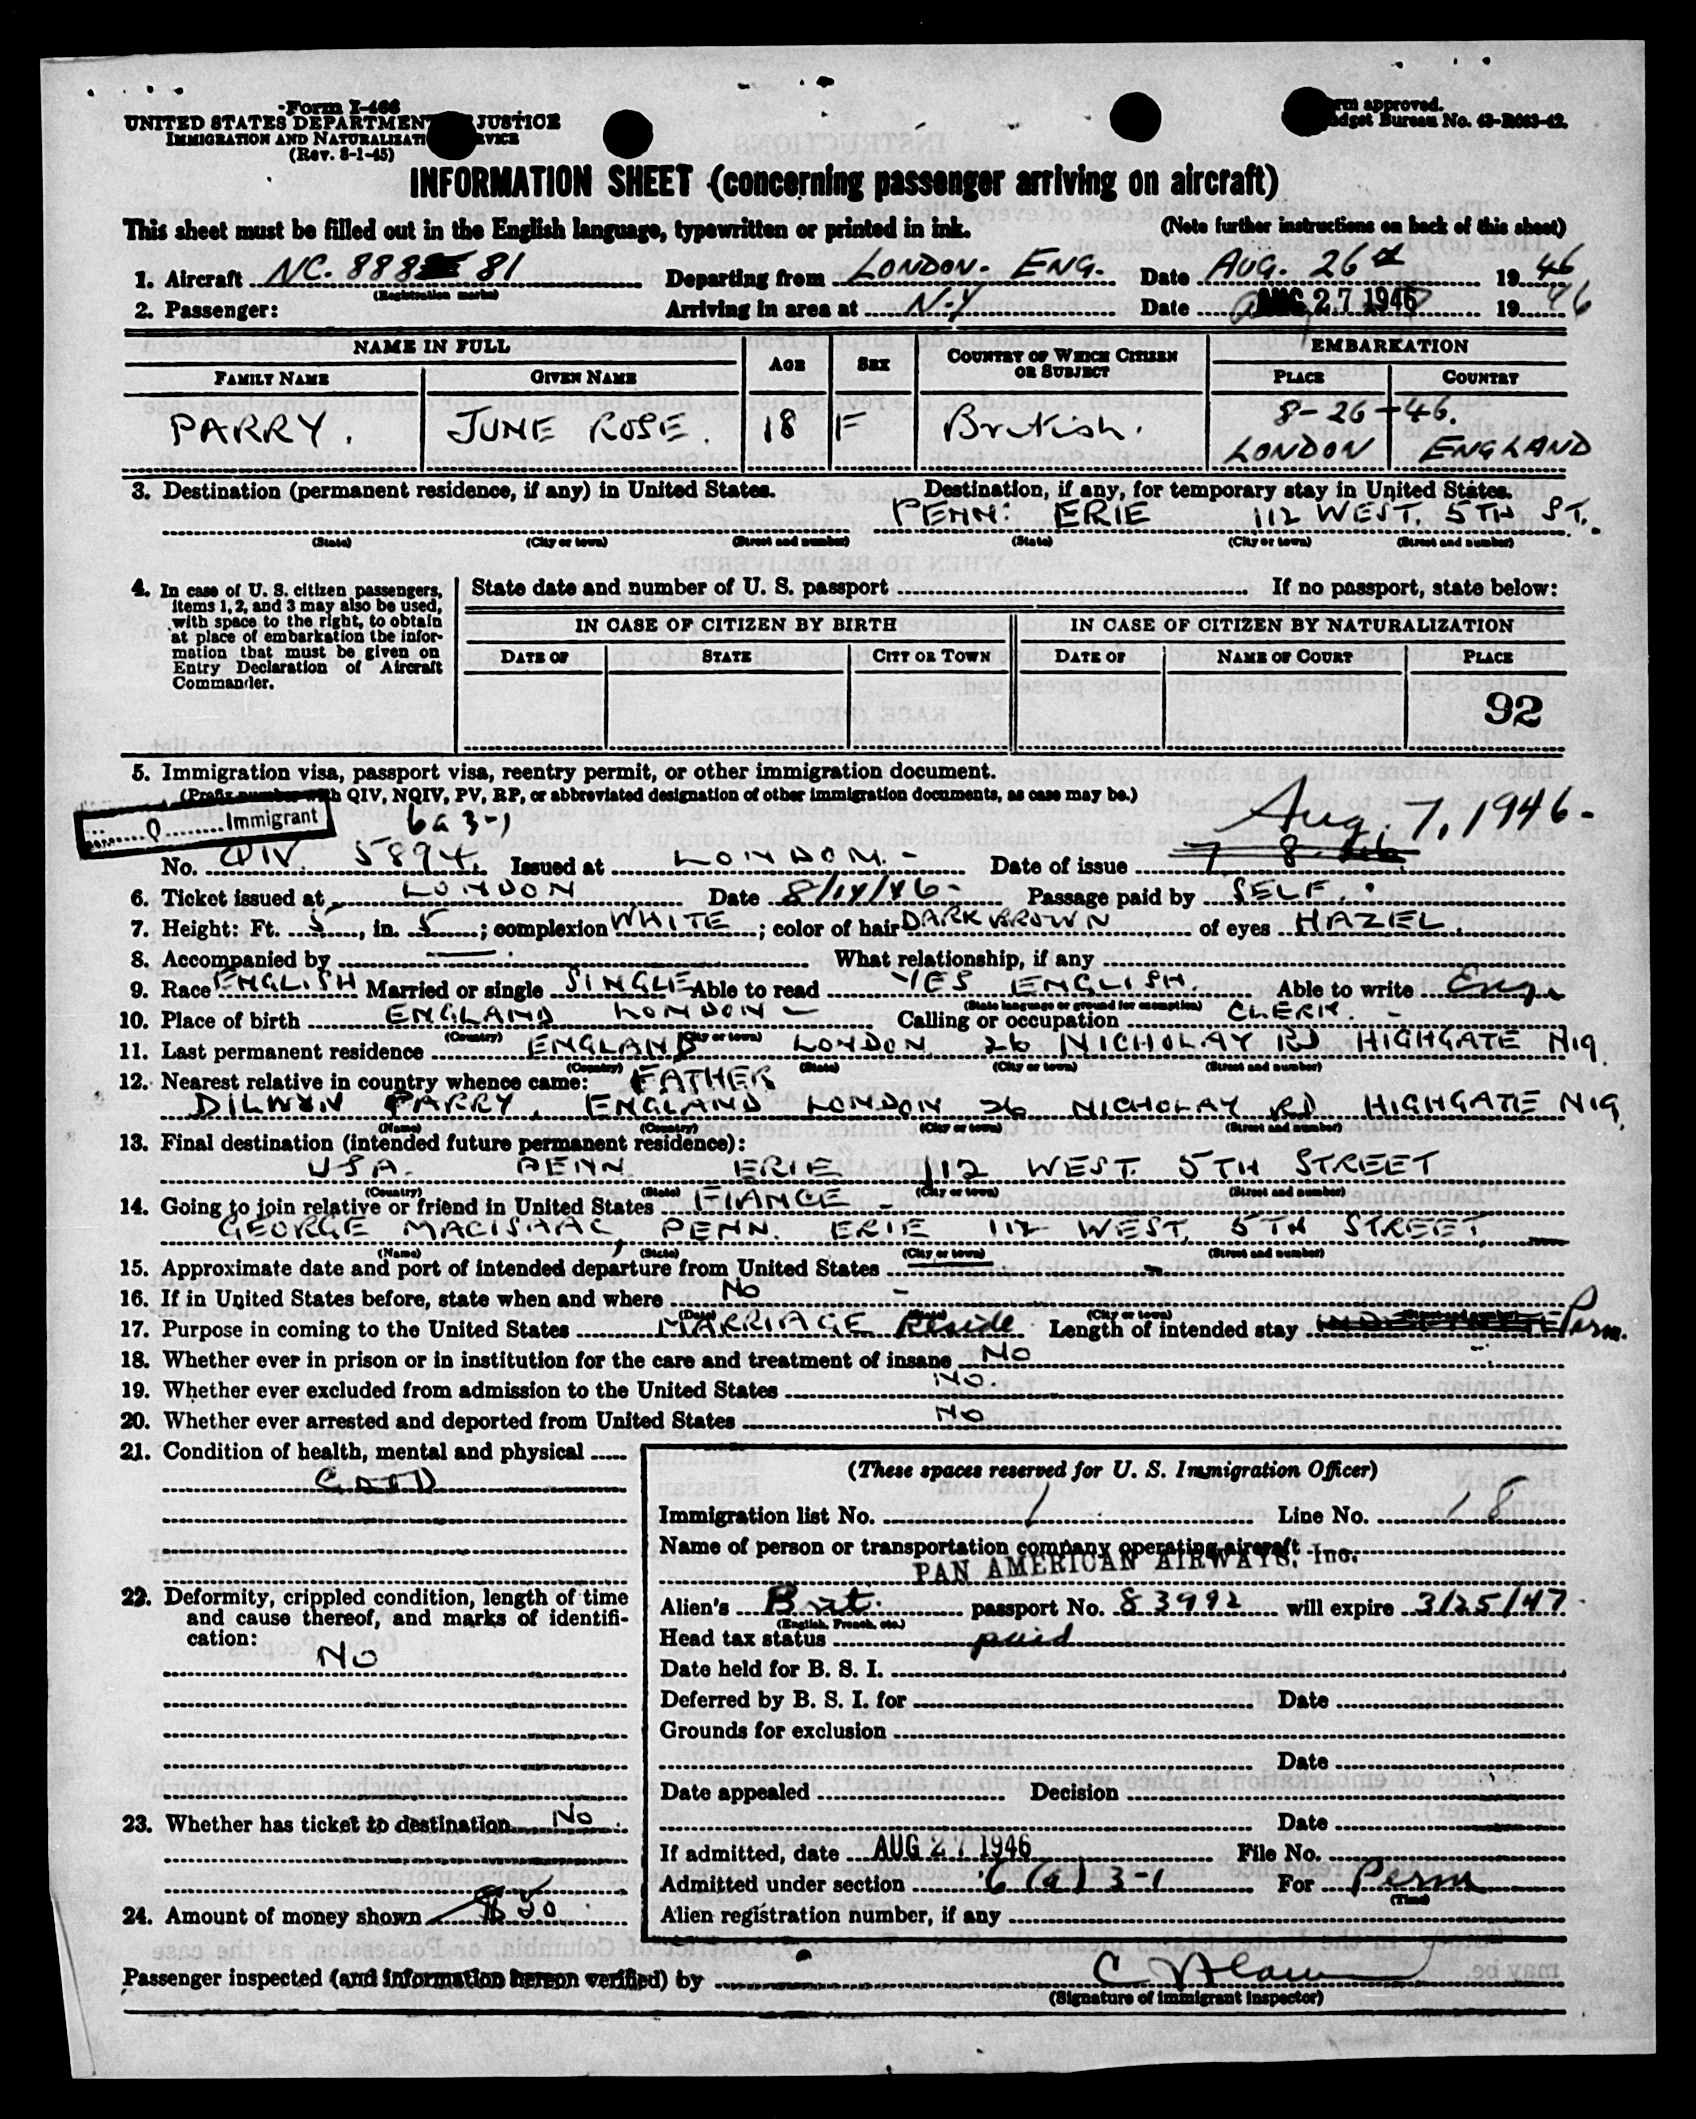 Form I-466
UNITED STATES DEPARTMENT JUSTICE
IMMIGRATION AND NATURALIZATI RVICE
(Rev. 8-1-45)
rm approved.
dget Bureau No. 43-R083-42.
INFORMATION SHEET (concerning passenger arriving on aircraft)
This sheet must be filled out in the English language, typewritten or printed in ink. (Note further instructions on back of this sheet)
1. Aircraft NC. 888 81 Departing from LONDON. ENG. Date AUG. 26th 1946
(Registration marks)
2. Passenger: Arriving in area at N.Y Date AUG 27 1946 1946
NAME IN FULL AGE SEX COUNTRY OF WHICH CITIZEN OR SUBJECT EMBARKATION
FAMILY NAME GIVEN NAME PLACE COUNTRY
8-26-46.
PARRY. JUNE ROSE. 18 F British. LONDON ENGLAND
3. Destination (permanent residence, if any) in United States. Destination, if any, for temporary stay in United States.
PENN: ERIE 112 WEST. 5TH ST.
(State) (City or town) (Street and number) (State) (City or town) (Street and number)
4. In case of U. S. citizen passengers, items 1, 2, and 3 may also be used, with space to the right, to obtain at place of embarkation the information that must be given on Entry Declaration of Aircraft Commander.
State date and number of U. S. passport If no passport, state below:
IN CASE OF CITIZEN BY BIRTH IN CASE OF CITIZEN BY NATURALIZATION
DATE OF STATE CITY OR TOWN DATE OF NAME OF COURT PLACE
92
5. Immigration visa, passport visa, reentry permit, or other immigration document.
(Prefix number with QIV, NQIV, PV, RP, or abbreviated designation of other immigration documents, as case may be.)
Q Immigrant 6a 3-1 Aug. 7, 1946-
No. QIV. 5894. Issued at LONDON.- Date of issue
6. Ticket issued at LONDON Date 8/14/46- Passage paid by SELF.
7. Height: Ft. 5, in. 5; complexion WHITE; color of hair DARK BROWN of eyes HAZEL.
8. Accompanied by — What relationship, if any
9. Race ENGLISH Married or single SINGLE Able to read YES ENGLISH. Able to write Eng.
(State language or ground for exemption)
10. Place of birth ENGLAND LONDON - Calling or occupation CLERK. -
(Country) (City or town)
11. Last permanent residence ENGLAND LONDON 26 NICHOLAY RD HIGHGATE N19
(Country) (State) (City or town) (Street and number)
12. Nearest relative in country whence came: FATHER
DILWYN PARRY, ENGLAND LONDON 26 NICHOLAY RD HIGHGATE N19.
(Name) (Country) (City or town) (Street and number)
13. Final destination (intended future permanent residence):
USA. PENN. ERIE 112 WEST. 5TH STREET
(Country) (State) (City or town) (Street and number)
14. Going to join relative or friend in United States FIANCE -
GEORGE MACISAAC, PENN. ERIE 112 WEST. 5TH STREET
(Name) (State) (City or town) (Street and number)
15. Approximate date and port of intended departure from United States
16. If in United States before, state when and where No -
(Date) (State) (City or town) (Street and number)
17. Purpose in coming to the United States MARRIAGE Reside Length of intended stay Perm.
18. Whether ever in prison or in institution for the care and treatment of insane No
19. Whether ever excluded from admission to the United States No.
20. Whether ever arrested and deported from United States No
21. Condition of health, mental and physical
GOOD
22. Deformity, crippled condition, length of time and cause thereof, and marks of identification:
No
23. Whether has ticket to destination No
24. Amount of money shown $50
(These spaces reserved for U. S. Immigration Officer)
Immigration list No. 1 Line No. 18
Name of person or transportation company operating aircraft
PAN AMERICAN AIRWAYS, Inc.
Alien's Brit. passport No. 83992 will expire 3/25/47
(English, French, etc.)
Head tax status paid
Date held for B. S. I.
Deferred by B. S. I. for Date
Grounds for exclusion
Date
Date appealed Decision
Date
If admitted, date AUG 27 1946 File No.
Admitted under section 6(a)3-1 For Perm
(Time)
Alien registration number, if any
Passenger inspected (and information hereon verified) by
(Signature of immigrant inspector)